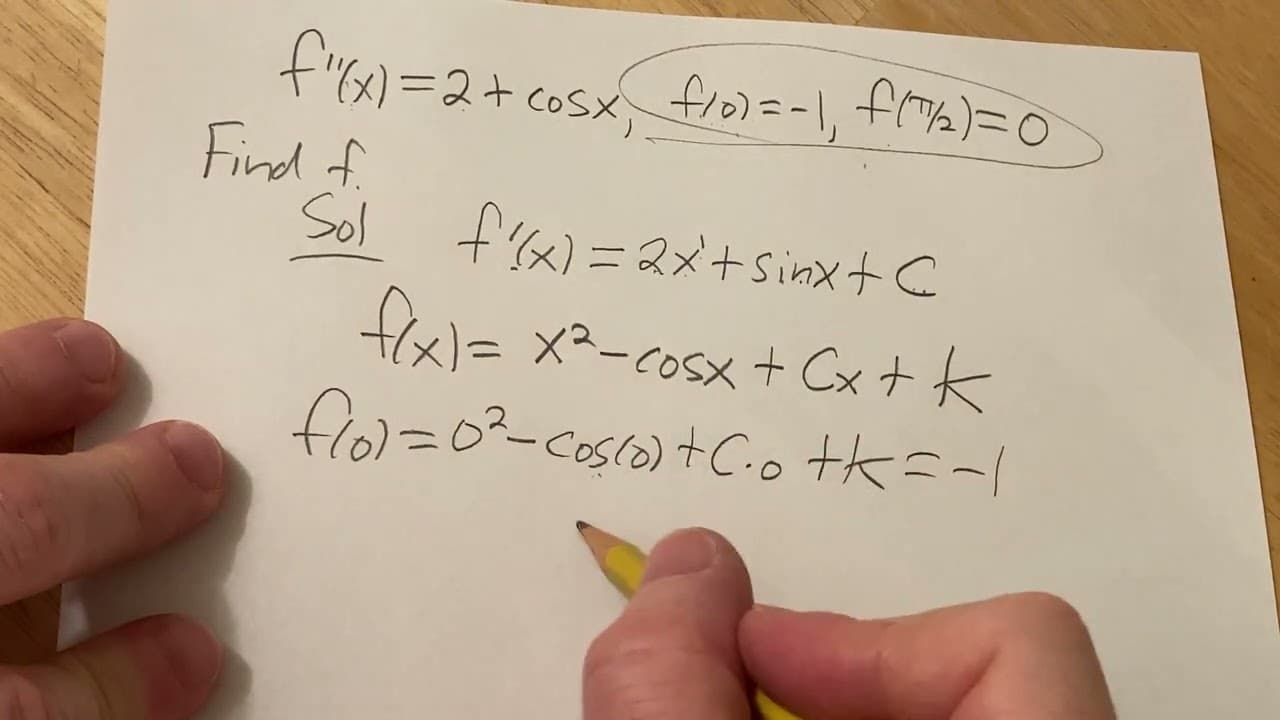 f''(x) = 2 + cosx, f(0) = -1, f(π/2) = 0
Find f.
Sol f'(x) = 2x¹ + sinx + C
f(x) = x² - cosx + Cx + K
f(0) = 0² - cos(0) + C·0 + K = -1